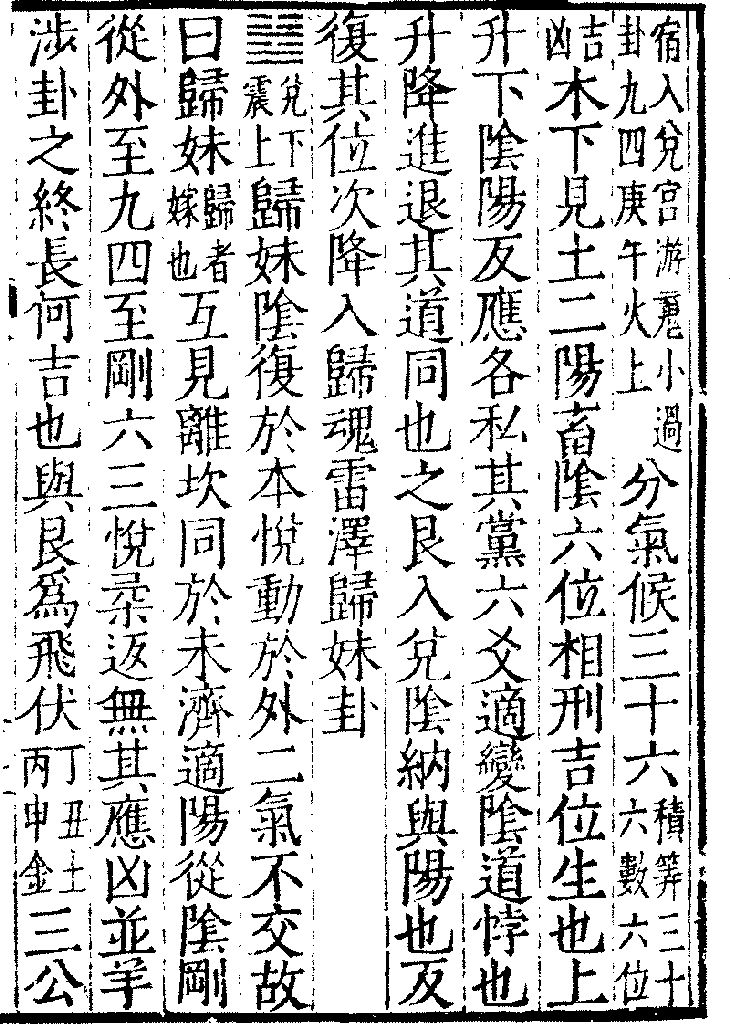 宿入兌宮游䰟小過卦九四庚午火上分氣候三十六積筭三十六數六位
吉凶木下見土二陽畜陰六位相刑吉位生也上
升下陰陽反應各私其黨六爻適變陰道悖也
升降進退其道同也之艮入兌陰納與陽也反
復其位次降入歸魂雷澤歸妹卦
䷵兌下震上歸妹陰復於本悅動於外二氣不交故
曰歸妹歸者嫁也互見離坎同於未濟適陽從陰剛
從外至九四至剛六三悅柔返無其應凶並羊
涉卦之終長何吉也與艮爲飛伏丁丑土丙申金三公